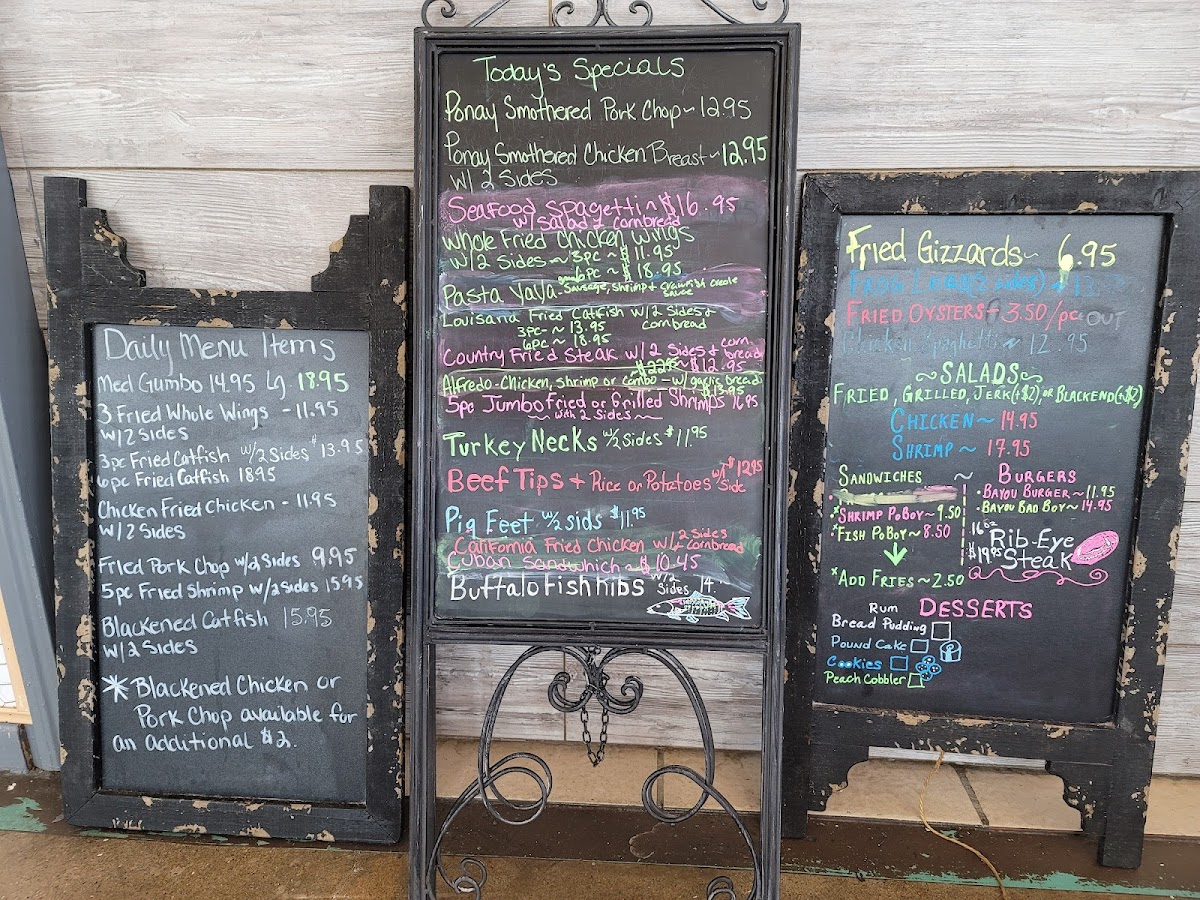 Daily Menu Items
Med Gumbo 14.95 Lg. 18.95
3 Fried Whole Wings - 11.95
w/2 Sides
3pc Fried Catfish w/2 Sides $13.95
6pc Fried Catfish 18.95
Chicken Fried Chicken - 11.95
w/2 Sides
Fried Pork Chop w/2 Sides 9.95
5pc Fried Shrimp w/2 Sides 15.95
Blackened Catfish 15.95
w/2 Sides
* Blackened Chicken or
Pork Chop available for
an additional $2.
Today's Specials
Ponay Smothered Pork Chop ~ 12.95
Ponay Smothered Chicken Breast ~ 12.95
w/ 2 Sides
Seafood Spagetti ~ $16.95
w/ Salad & cornbread
Whole Fried Chicken Wings
w/ 2 Sides ~ 3pc ~ $11.95
6pc ~ $18.95
Pasta YaYa - Sausage, shrimp & crawfish creole
sauce
Louisana Fried Catfish w/2 Sides &
cornbread
3pc ~ 13.95
6pc ~ 18.95
Country Fried Steak w/2 Sides & corn
bread
~ $12.95
Alfredo - Chicken, shrimp or combo - w/ garlic bread
$13.95
5pc Jumbo Fried or Grilled Shrimps 16.95
~ with 2 Sides ~
Turkey Necks w/2 Sides $11.95
Beef Tips + Rice or Potatoes w/1 Side $12.95
Pig Feet w/2 sids $11.95
California Fried Chicken w/ 2 Sides cornbread
Cuban Sandwhich ~ $10.45
Buffalo Fish Ribs w/2 Sides 14
Fried Gizzards ~ 6.95
Fried Oysters - 3.50/pc OUT
Chicken Spaghetti ~ 12.95
~ Salads ~
Fried, Grilled, Jerk (+$2), or Blackend (+$2)
Chicken ~ 14.95
Shrimp ~ 17.95
Sandwiches ~ Burgers
• Bayou Burger ~ 11.95
*Shrimp PoBoy ~ 9.50 • Bayou Bad Boy ~ 14.95
*Fish PoBoy ~ 8.50
16oz Rib-Eye
$19.95 Steak
*Add Fries ~ 2.50
Desserts
Rum
Bread Pudding
Pound Cake
Cookies
Peach Cobbler